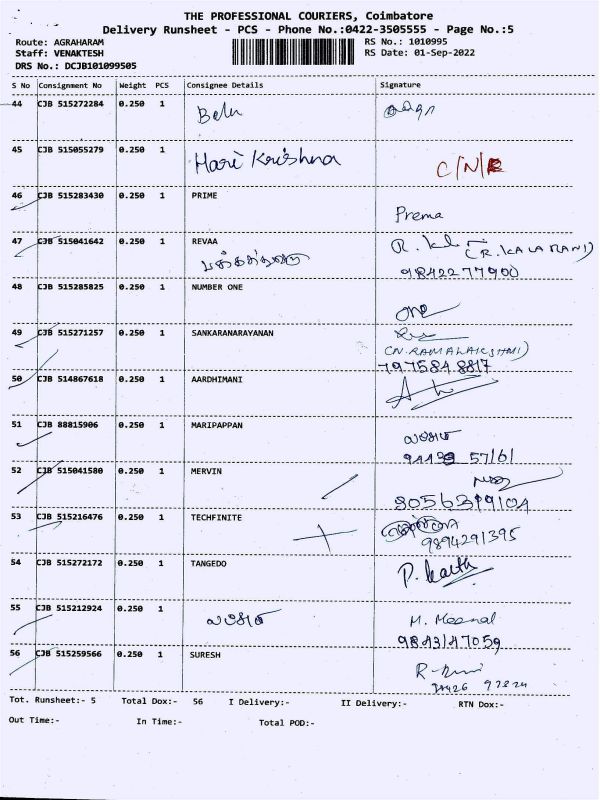 THE PROFESSIONAL COURIERS, Coimbatore
Delivery Runsheet - PCS - Phone No.:0422-3505555 - Page No.:5
Route: AGRAHARAM
Staff: VENAKTESH
DRS No.: DCJB101099505
RS No.: 1010995
RS Date: 01-Sep-2022
S No Consignment No Weight PCS Consignee Details Signature
44 CJB 515272284 0.250 1
45 CJB 515055279 0.250 1 Hari Krishna C/N/R
46 CJB 515283430 0.250 1 PRIME
Prema
47 CJB 515041642 0.250 1 REVAA
(R.KALARANI)
9842277900
48 CJB 515285825 0.250 1 NUMBER ONE
one
49 CJB 515271257 0.250 1 SANKARANARAYANAN
(N.RAMALAKSHMI)
7975848817
50 CJB 514867618 0.250 1 AARDHIMANI
51 CJB 88815906 0.250 1 MARIPAPPAN
52 CJB 515041580 0.250 1 MERVIN
53 CJB 515216476 0.250 1 TECHFINITE
9894291395
54 CJB 515272172 0.250 1 TANGEDO
55 CJB 515212924 0.250 1
M. Meenal
9843147059
56 CJB 515259566 0.250 1 SURESH
Tot. Runsheet:- 5 Total Dox:- 56 I Delivery:- II Delivery:- RTN Dox:-
Out Time:- In Time:- Total POD:-